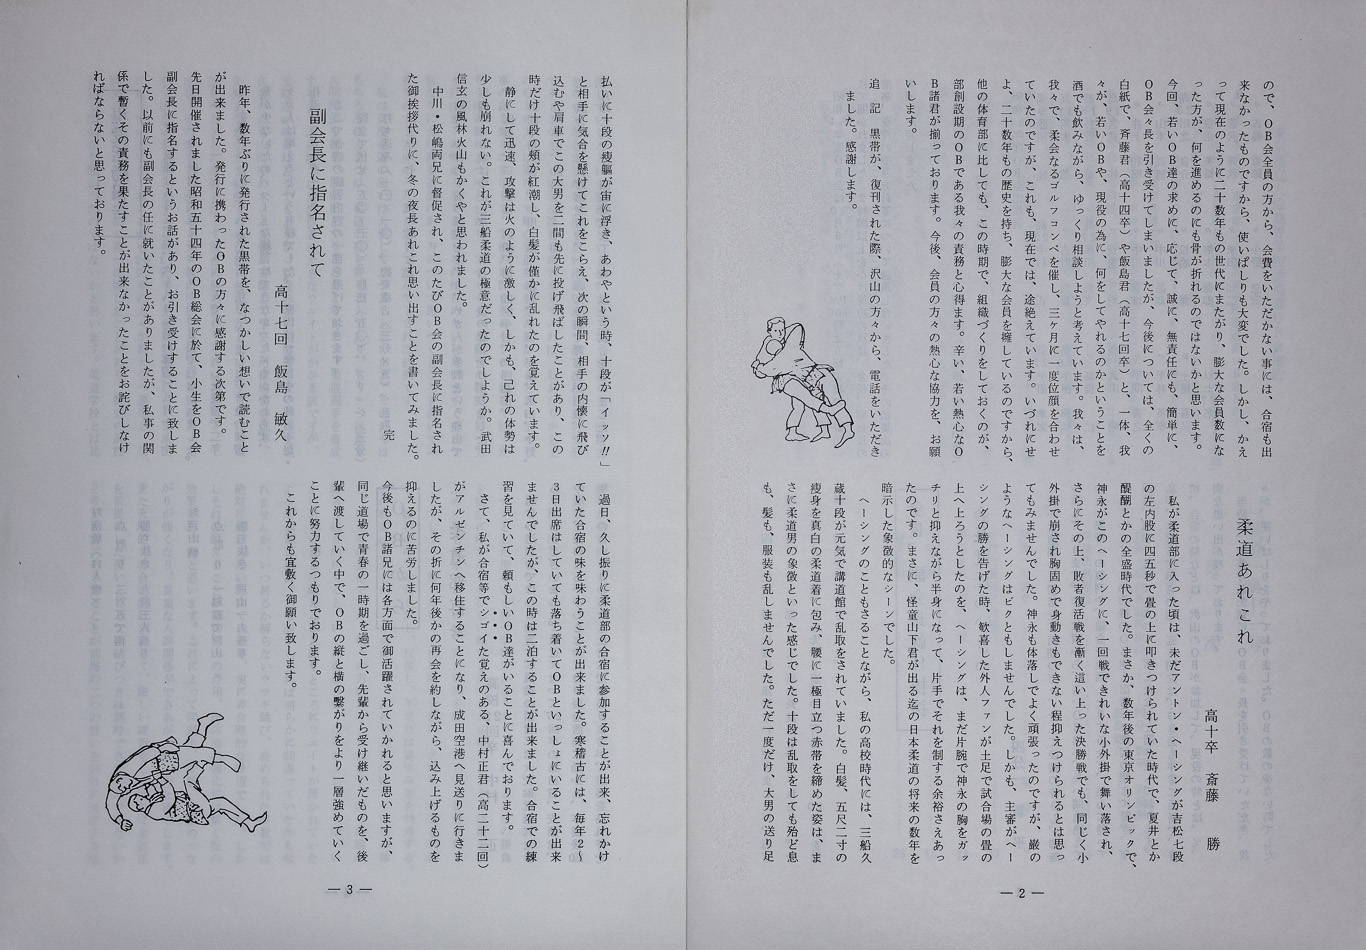 ので、OB会全員の方から、会費をいただかない事には、合宿も出
来なかったものですから、使いぱしりも大変でした。しかし、かえ
って現在のように二十数年もの世代にまたがり、膨大な会員数にな
った方が、何を進めるのにも骨が折れるのではないかと思います。
今回、若いOB達の求めに、応じて、誠に、無責任にも、簡単に、
OB会々長を引き受けてしまいましたが、今後については、全くの
白紙で、斉藤君（高十四卒）や飯島君（高十七回卒）と、一体、我
々が、若いOBや、現役の為に、何をしてやれるのかということを
酒でも飲みながら、ゆっくり相談しようと考えています。我々は、
我々で、柔会なるゴルフコンペを催し、三ヶ月に一度位顔を合わせ
ていたのですが、これも、現在では、途絶えています。いづれにせ
よ、二十数年もの歴史を持ち、膨大な会員を擁しているのですから、
他の体育部に比しても、この時期で、組織づくりをしておくのが、
部創設期のOBである我々の責務と心得ます。辛い、若い熱心なO
B諸君が揃っております。今後、会員の方々の熱心な協力を、お願
いします。
追　記　黒帯が、復刊された際、沢山の方々から、電話をいただき
ました。感謝します。
柔道あれこれ
高十卒　斎藤　勝
私が柔道部に入った頃は、未だアントン・ヘーシングが吉松七段
の左内股に四五秒で畳の上に叩きつけられていた時代で、夏井とか
醍醐とかの全盛時代でした。まさか、数年後の東京オリンピックで、
神永がこのヘーシングに、一回戦できれいな小外掛で舞い落され、
さらにその上、敗者復活戦を漸く這い上った決勝戦でも、同じく小
外掛で崩され胸固めで身動きもできない程抑えつけられるとは思っ
てもみませんでした。神永も体落しでよく頑張ったのですが、巌の
ようなヘーシングはビクともしませんでした。しかも、主審がヘー
シングの勝を告げた時、歓喜した外人ファンが土足で試合場の畳の
上へ上ろうとしたのを、ヘーシングは、まだ片腕で神永の胸をガッ
チリと抑えながら半身になって、片手でそれを制する余裕さえあっ
たのです。まさに、怪童山下君が出る迄の日本柔道の将来の数年を
暗示した象徴的なシーンでした。
ヘーシングのこともさることながら、私の高校時代には、三船久
蔵十段が元気で講道館で乱取をされていました。白髪、五尺二寸の
痩身を真白の柔道着に包み、腰に一極目立つ赤帯を締めた姿は、ま
さに柔道男の象徴といった感じでした。十段は乱取をしても殆ど息
も、髪も、服装も乱しませんでした。ただ一度だけ、大男の送り足
— 2 —
払いに十段の痩軀が宙に浮き、あわやという時、十段が「イッツ!!」
と相手に気合を懸けてこれをこらえ、次の瞬間、相手の内懐に飛び
込むや肩車でこの大男を二間も先に投げ飛ばしたことがあり、この
時だけ十段の頬が紅潮し、白髪が僅かに乱れたのを覚えています。
静にして迅速、攻撃は火のように激しく、しかも、己れの体勢は
少しも崩れない。これが三船柔道の極意だったのでしょうか。武田
信玄の風林火山もかくやと思われました。
中川・松嶋両兄に督促され、このたびOB会の副会長に指名され
た御挨拶代りに、冬の夜長あれこれ思い出すことを書いてみました。
完
副会長に指名されて
高十七回　飯島　敏久
昨年、数年ぶりに発行された黒帯を、なつかしい想いで読むこと
が出来ました。発行に携わったOBの方々に感謝する次第です。
先日開催されました昭和五十四年のOB総会に於て、小生をOB会
副会長に指名するというお話があり、お引き受けすることに致しま
した。以前にも副会長の任に就いたことがありましたが、私事の関
係で暫くその責務を果たすことが出来なかったことをお詫びしなけ
ればならないと思っております。
過日、久し振りに柔道部の合宿に参加することが出来、忘れかけ
ていた合宿の味を味わうことが出来ました。寒稽古には、毎年2〜
3日出席はしていても落ち着いてOBといっしょにいることが出来
ませんでしたが、この時は二泊することが出来ました。合宿での練
習を見ていて、頼もしいOB達がいることに喜んでおります。
さて、私が合宿等でシゴイた覚えのある、中村正君（高二十二回）
がアルゼンチンへ移住することになり、成田空港へ見送りに行きま
したが、その折に何年後かの再会を約しながら、込み上げるものを
抑えるのに苦労しました。
今後もOB諸兄には各方面で御活躍されていかれると思いますが、
同じ道場で青春の一時期を過ごし、先輩から受け継いだものを、後
輩へ渡していく中で、OBの縦と横の繫がりをより一層強めていく
ことに努力するつもりでおります。
これからも宜敷く御願い致します。
— 3 —